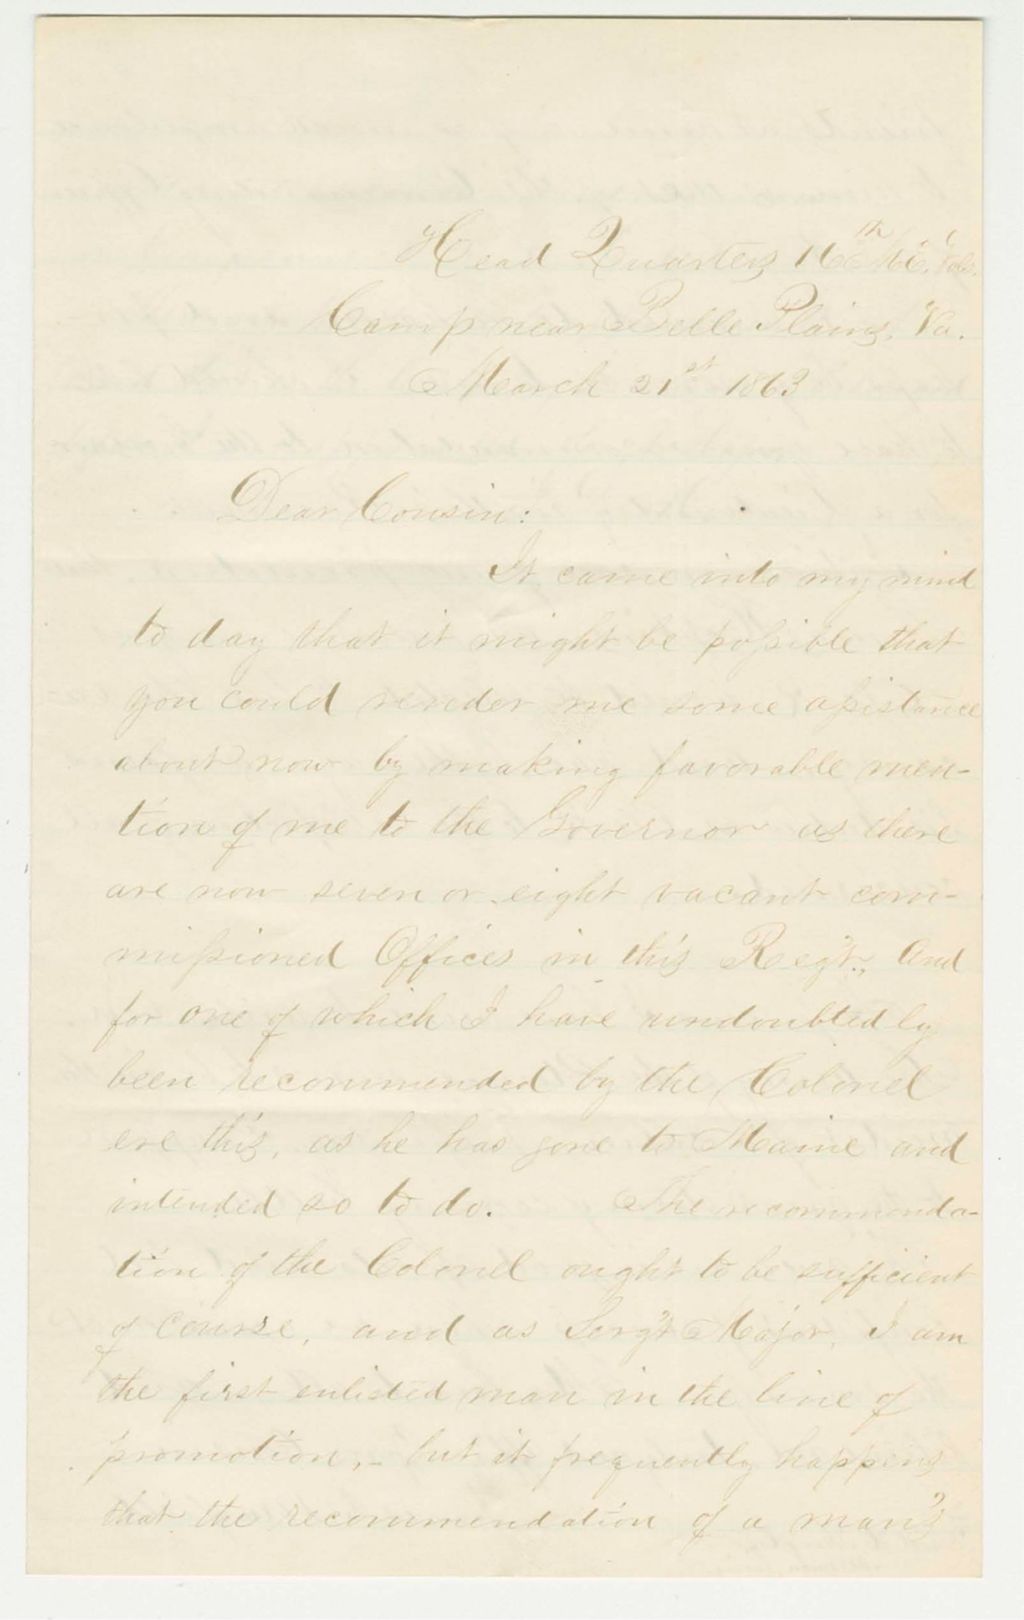 Head Quarters 16th Me. Vols.
Camp near Belle Plains, Va.
March 21st 1863
Dear Cousin:
It came into my mind
to day that it might be possible that
you could render me some assistance
about now by making favorable men-
tion of me to the Governor as there
are now seven or eight vacant com-
missioned Offices in this Reg't., and
for one of which I have undoubtedly
been recommended by the Colonel
ere this, as he has gone to Maine and
intended so to do. The recommenda-
tion of the Colonel ought to be sufficient
of course, and as Serg't Major, I am
the first enlisted man in the line of
promotion,- but it frequently happens
that the recommendation of a man's